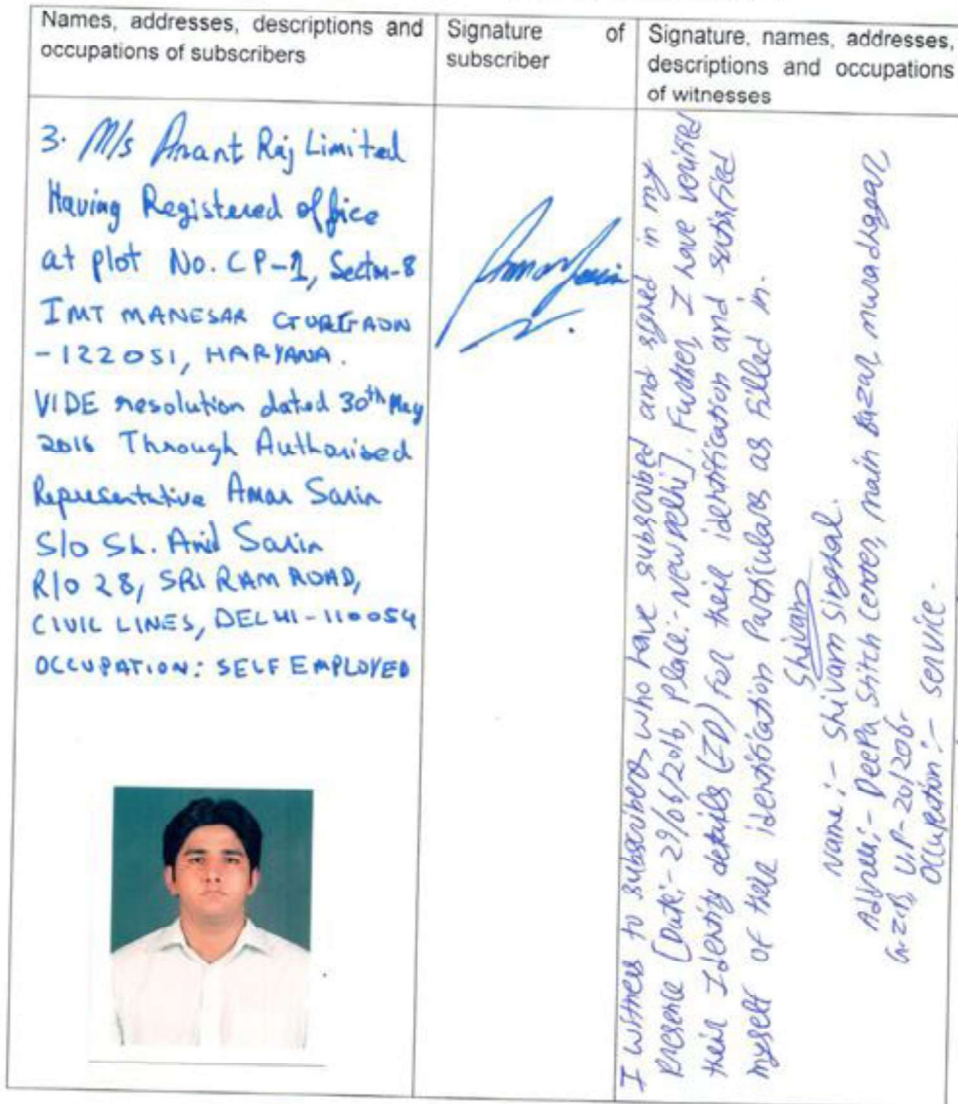 Names, addresses, descriptions and
occupations of subscribers
Signature of
subscriber
Signature, names, addresses,
descriptions and occupations
of witnesses
3. M/s Anant Raj Limited
Having Registered office
at plot No. CP-1, Sector-8
IMT MANESAR GURGAON
-122051, HARYANA.
VIDE resolution dated 30th May
2016 Through Authorised
Representative Amar Sarin
S/o Sh. Anil Sarin
R/o 28, SRI RAM ROAD,
CIVIL LINES, DELHI-110054
OCCUPATION: SELF EMPLOYED
Amar Sarin
I witness to subscribers who have subscribed and signed in my
presence [Date:- 29/06/2016, place:- New Delhi]. Further, I have verified
their Identity details (ID) for their identification and satisfied
myself of their identification Particulars as filled in.
Shivam
Name:- Shivam Singhal.
Address:- Deepa Stitch Center, main Bazar, muradnagar,
GZB, U.P-201206.
Occupation:- Service.